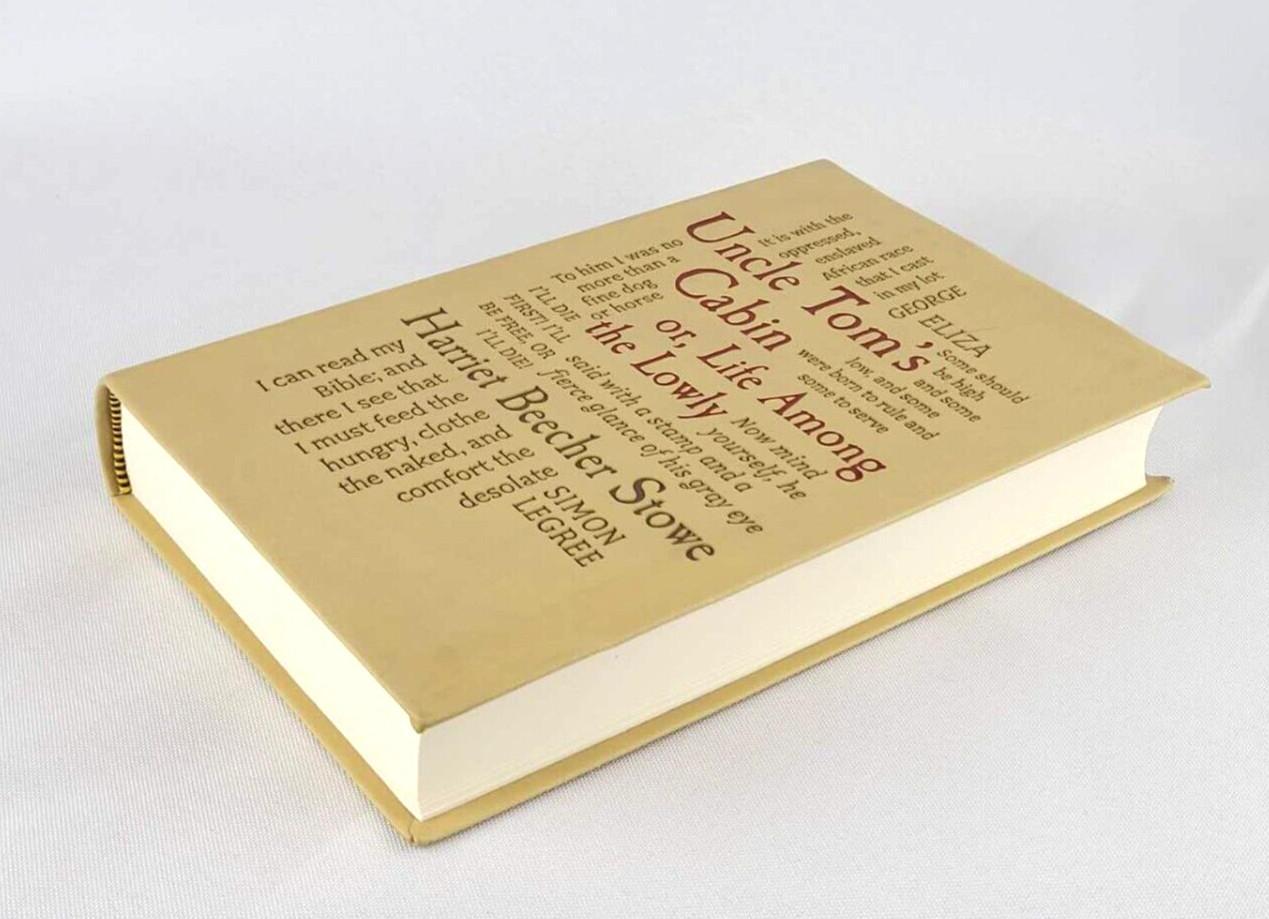 It is with the
oppressed,
enslaved
African race
that I cast
in my lot
GEORGE
ELIZA
Uncle Tom's
Some should
be high
and some
low, and some
were born to rule and
some to serve
To him I was no
more than a
fine dog
or horse
Cabin
or, Life Among
the Lowly
Now mind
yourself, he
said with a stamp and a
fierce glance of his gray eye
I'LL DIE
FIRST! I'LL
BE FREE, OR
I'LL DIE!
Harriet Beecher Stowe
I can read my
Bible; and
there I see that
I must feed the
hungry, clothe
the naked, and
comfort the
desolate
SIMON
LEGREE